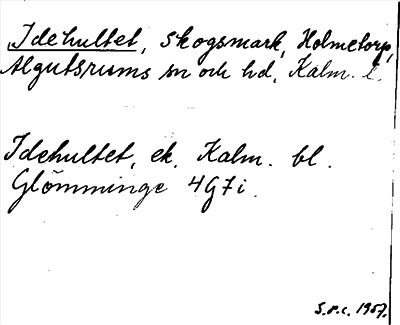 Idehultet, skogsmark, Holmetorp,
Algutsrums sn och hd, Kalm. l.
Idehultet, ek. Kalm. bl.
Glömminge 4G7i.
S.r.c. 1957.